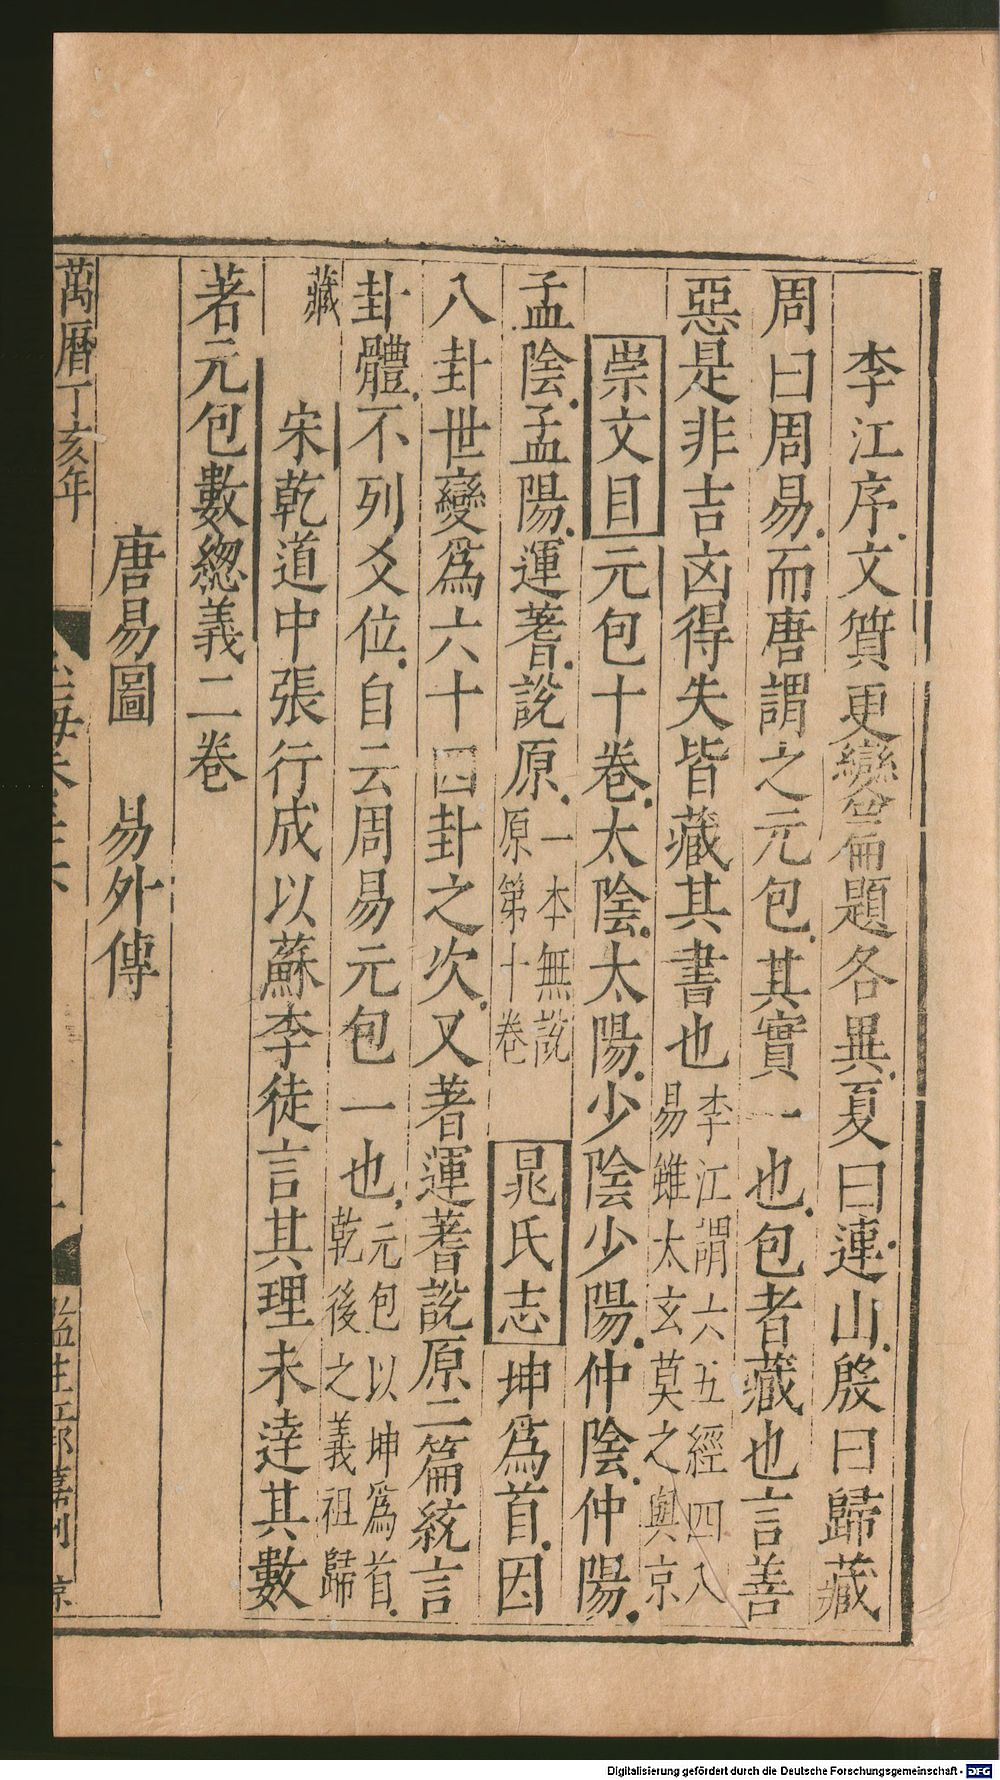 李江序文質更變篇題各異夏曰連山殷曰歸藏
周曰周易而唐謂之元包其實一也包者藏也言善
惡是非吉凶得失皆藏其書也李江謂六五經四八
易雖太玄莫之與京
崇文目元包十卷太陰太陽少陰少陽仲陰仲陽
孟陰孟陽運蓍說原一本無說
原第十卷
晁氏志坤爲首因
八卦世變爲六十四卦之次又著運蓍說原二篇統言
卦體不列爻位自云周易元包一也元包以坤爲首
乾後之義祖歸
藏
宋乾道中張行成以蘇李徒言其理未達其數
著元包數緫義二卷
唐易圖 易外傳
萬曆丁亥年
監生江邦嘉刊
Digitalisierung gefördert durch die Deutsche Forschungsgemeinschaft - DFG